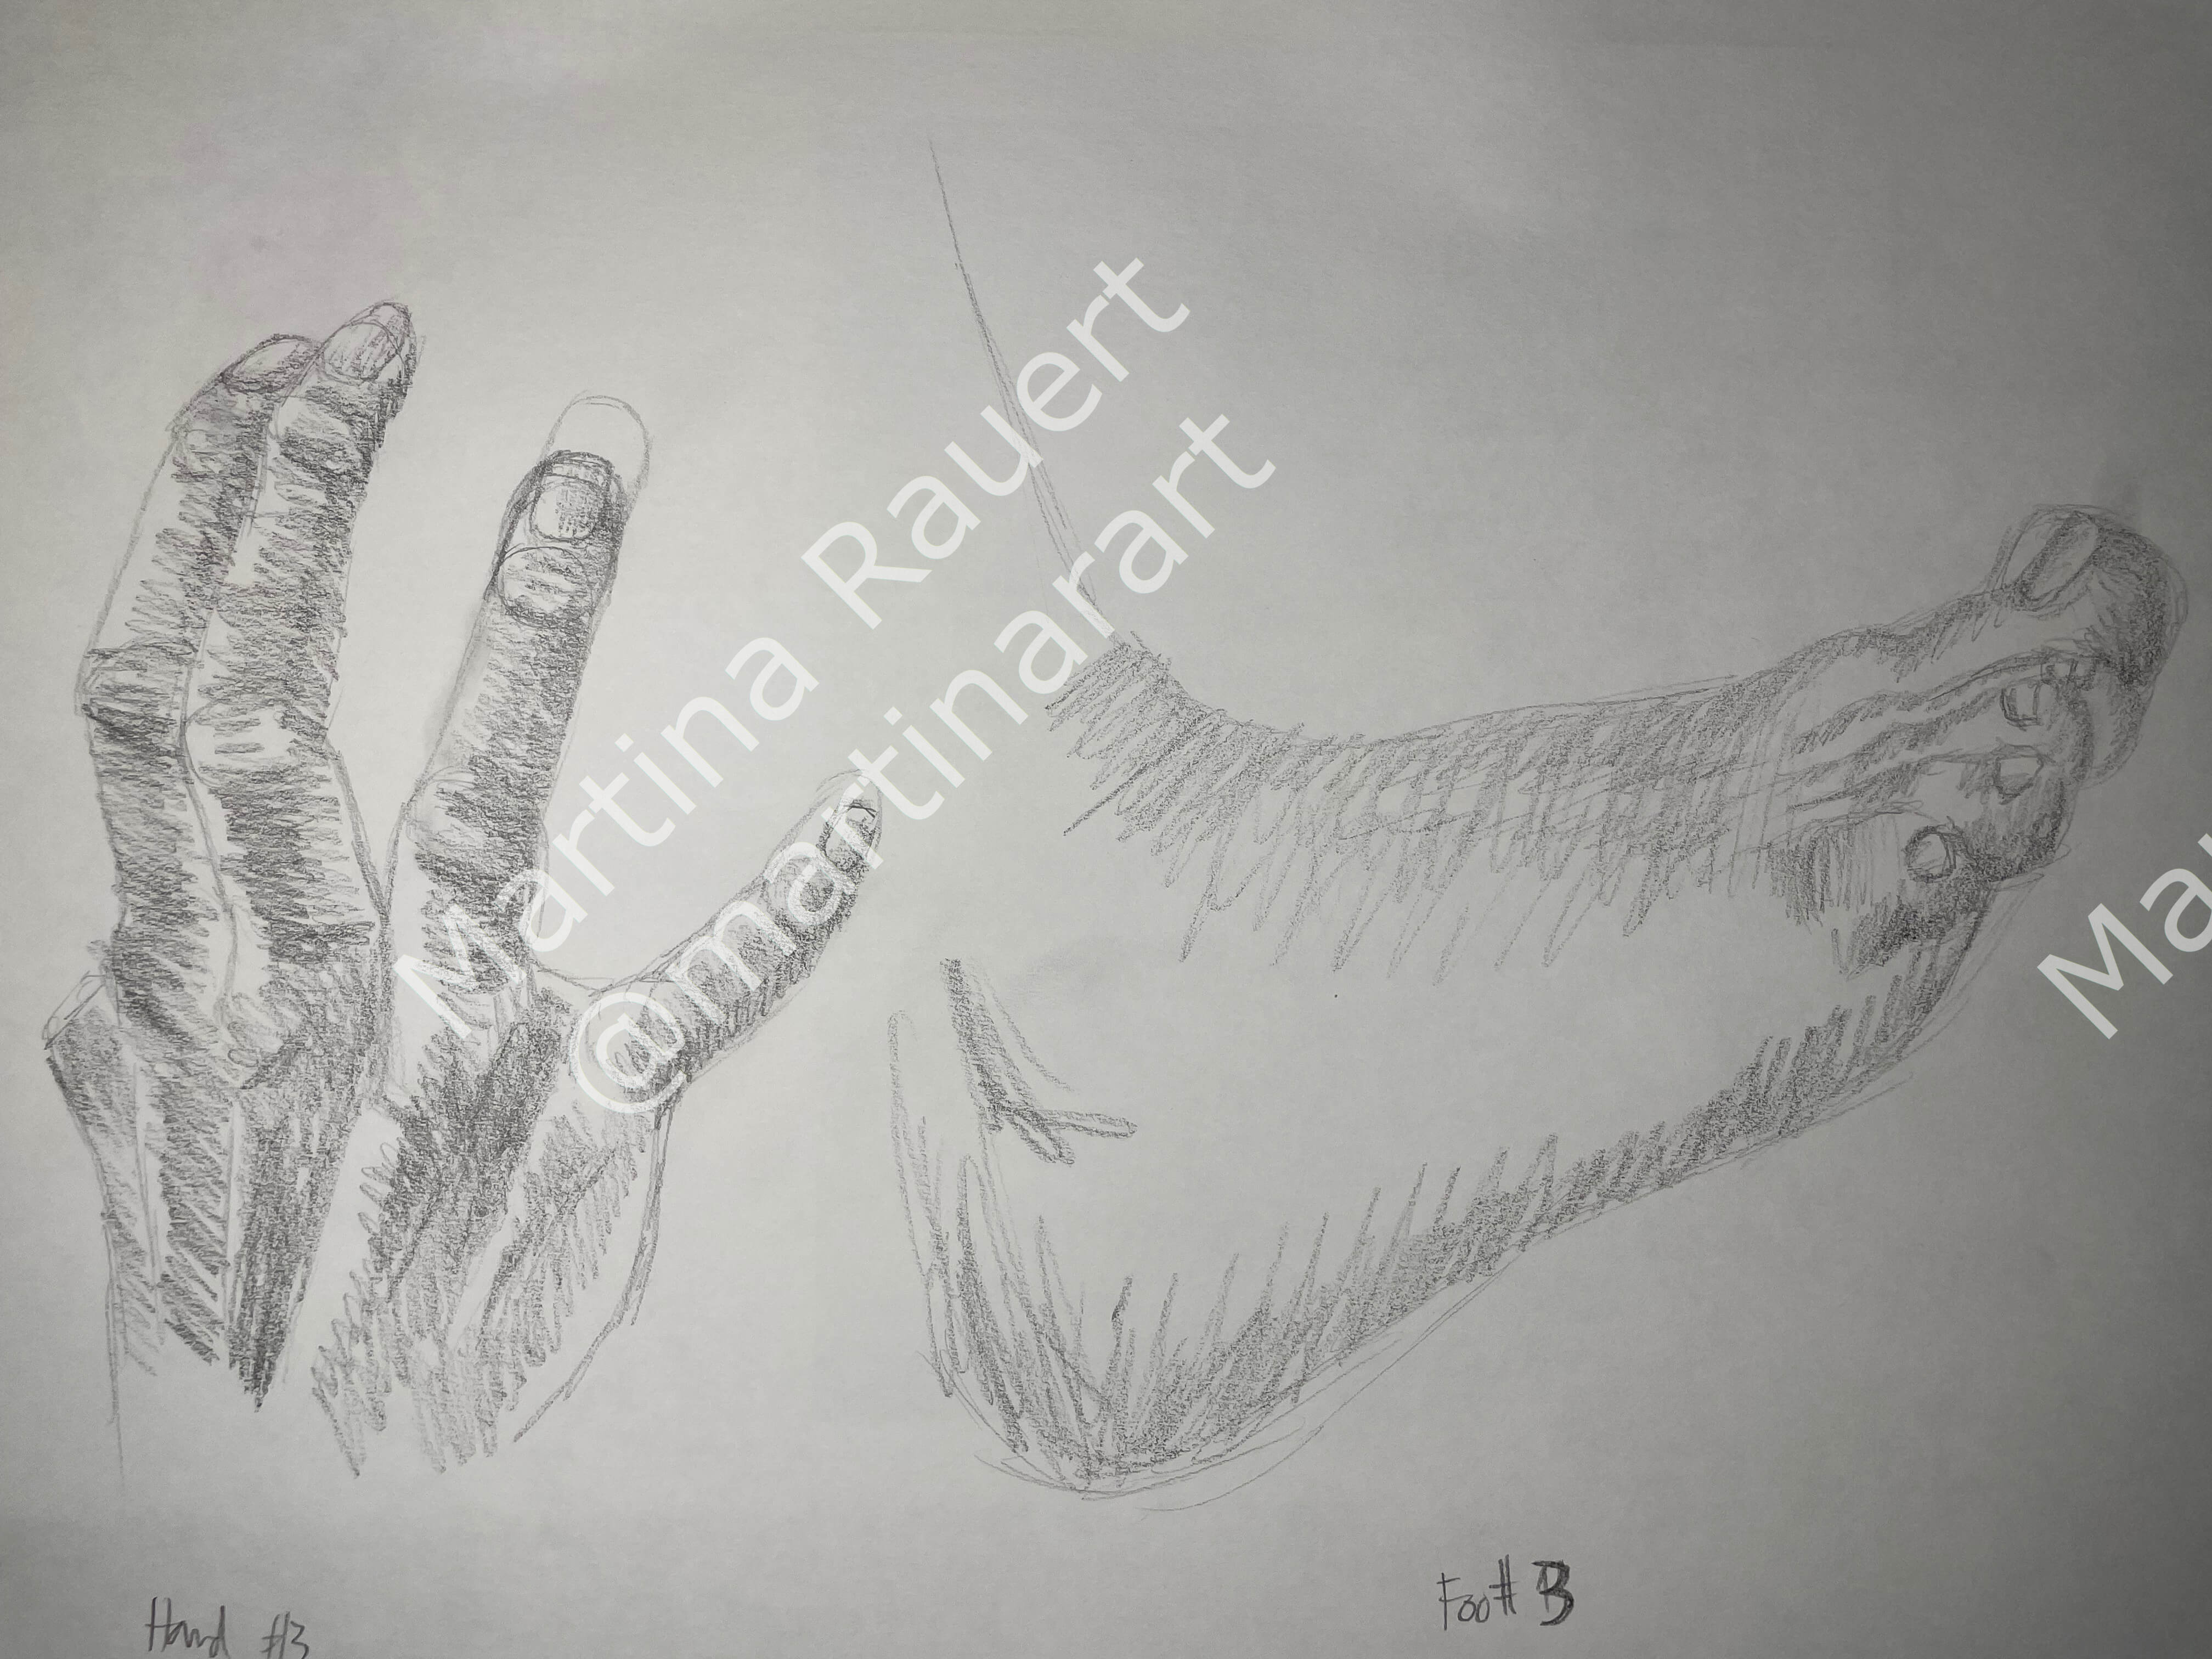 Martina Rauert
@martinarart
Ma
Hand #3
Foot# B